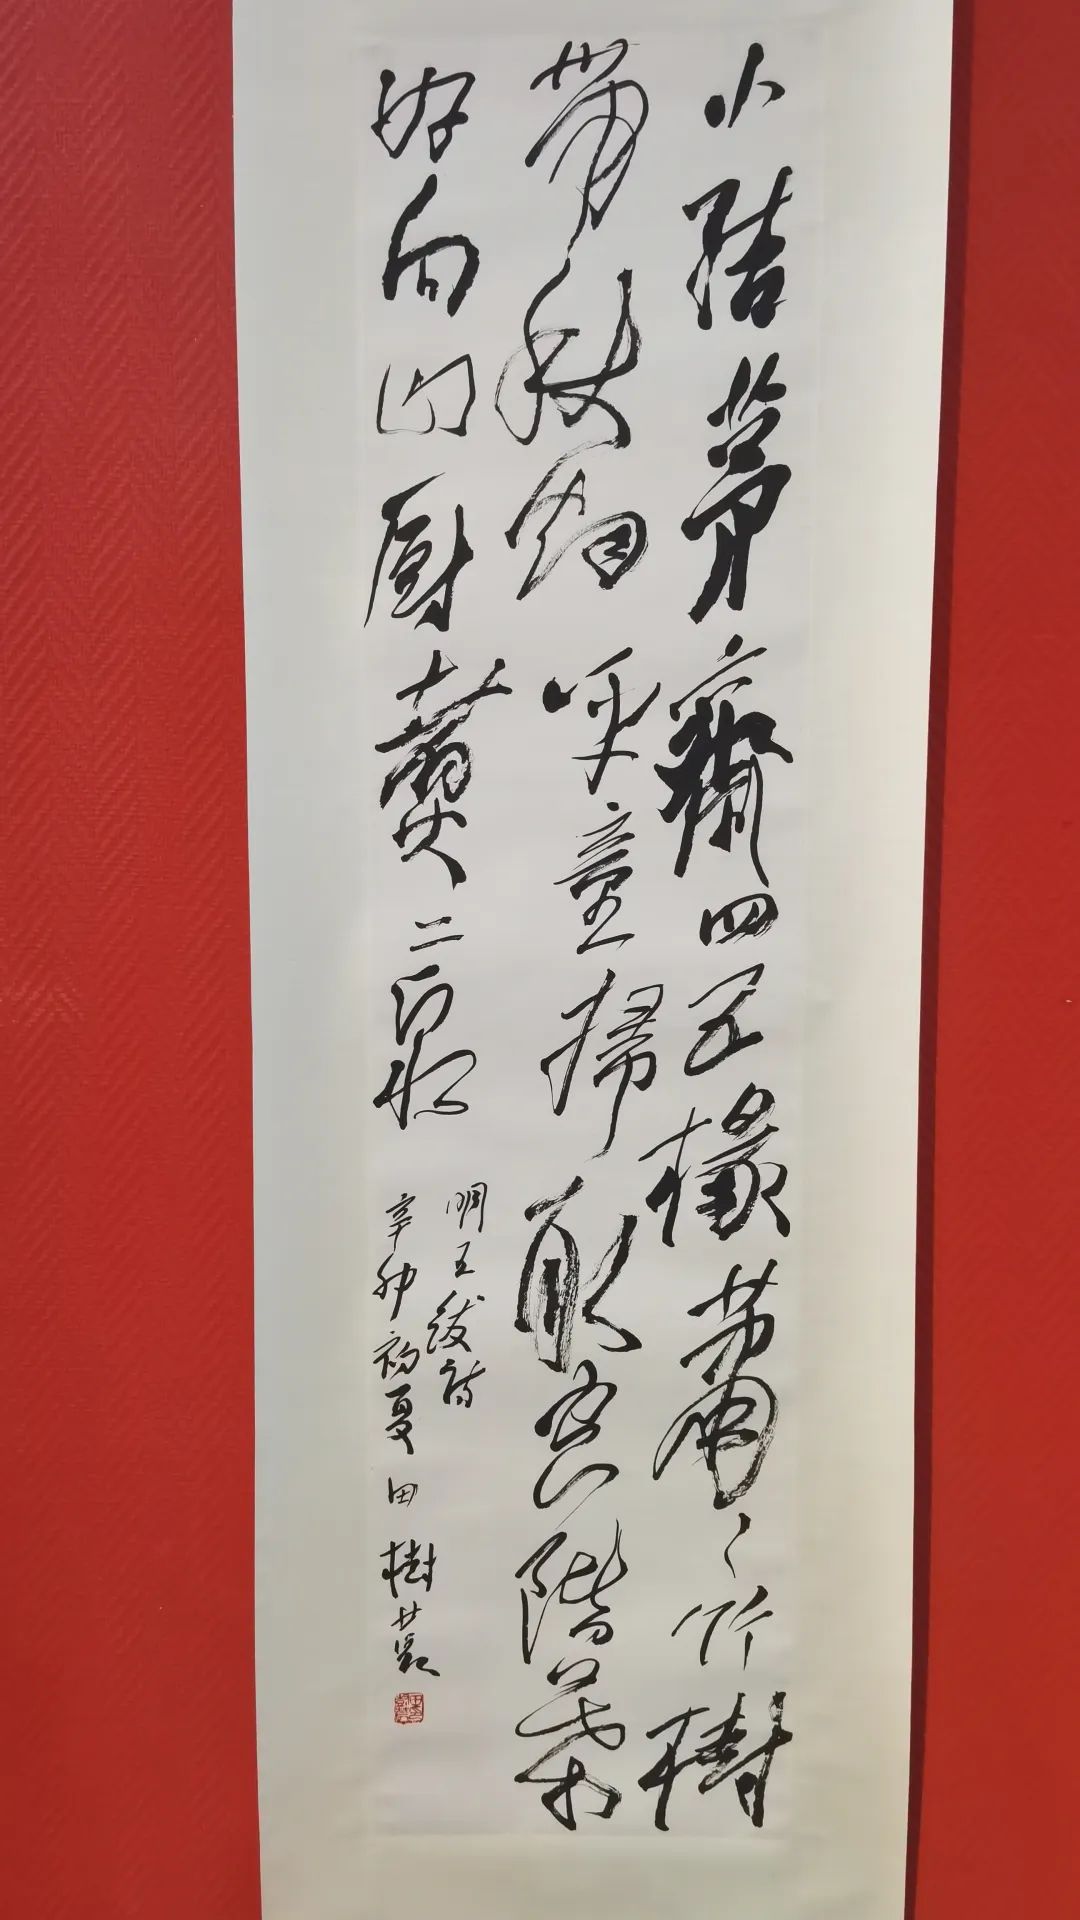 小結茅齋四五椽蕭〻竹樹
帶秋烟呼童掃取空階葉
好向山厨煮二泉
明王紱詩
辛卯初夏田樹萇